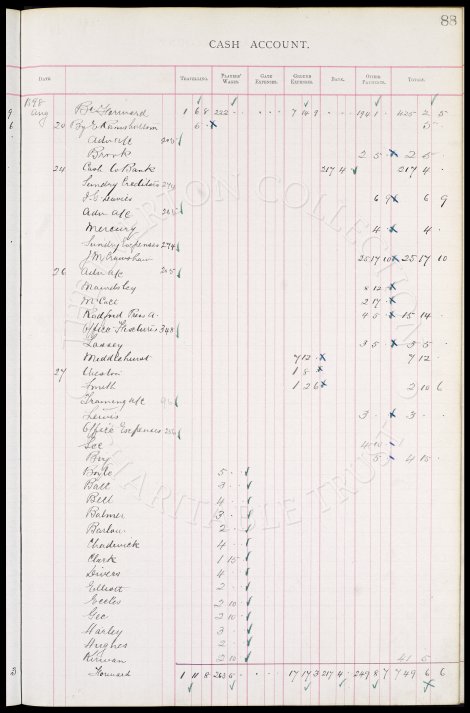 88
CASH ACCOUNT.
DATE TRAVELLING. PLAYERS' WAGES. GATE EXPENSES. GROUND EXPENSES. BANK. OTHER PAYMENTS. TOTALS.
1898
Aug Bt Forward 1 6 8 222 - - 7 14 9 194 1 425 2 5
20 By E 5 - 5 - -
Adv a/c 205
Brook 2 5 2 5 -
24 Cash to Bank 217 4 217 4 -
Sundry Creditors
J. C. 6 9 6 9
Adv a/c 205
Mercury 4 4 -
Sundry Expenses 274
J M Crawshaw 25 17 10 25 17 10
26 Adv a/c 205
Mawdsley 8 12
McCall 2 17
Radford Press a. 4 5 15 14 -
Office Fixtures 348
Lassey 3 5 3 5 -
Middlehurst 7 12 7 12
27 Weston 1 8
Smith 1 2 6 2 10 6
Training a/c
Lewis 3 - 3 - -
Office Expenses
Gee 4 10
Bry 5 4 15 -
Boyle 5 - -
Balt 3 - -
Bell 4 - -
Balmer 3 - -
Barlow 2 - -
Chadwick 4 - -
Clark 1 15 -
Divers 4 - -
Elliott 2 - -
Eccles 2 10 -
Gee 2 10 -
Harley 3 - -
Hughes 2 - -
Kirwan 2 10 - 41 5
Forward 1 11 8 263 5 - 17 17 3 217 4 249 8 7 749 6 6
THE EVERTON COLLECTION CHARITABLE TRUST